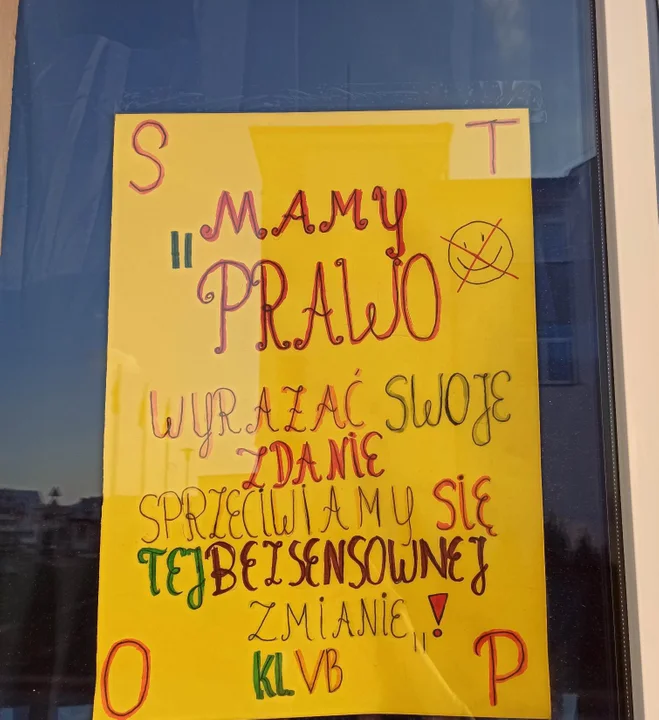 S T
"MAMY
PRAWO
WYRAZAĆ SWOJE
ZDANIE
SPRZECIWIAMY SIĘ
TEJ BEZSENSOWNEJ
ZMIANIE"!
O KL VB P